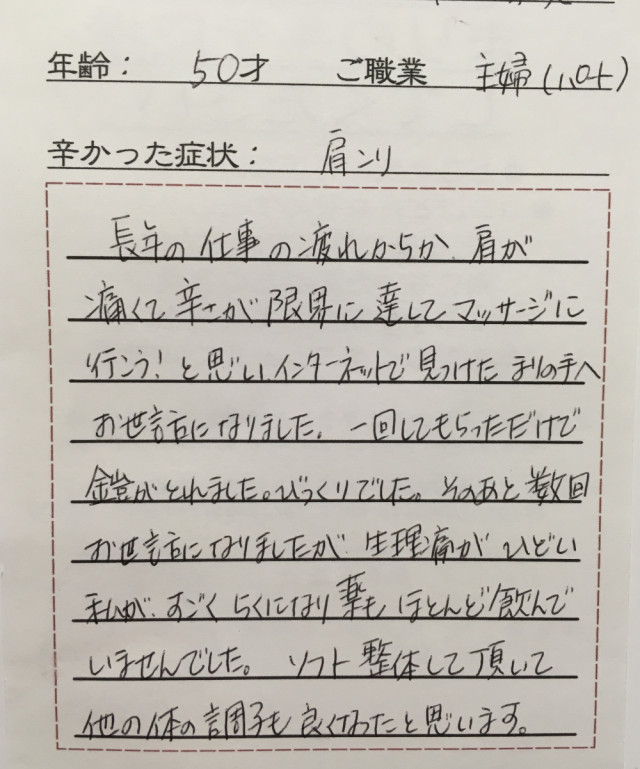 年齢： 50才 ご職業 主婦(パート)
辛かった症状： 肩コリ
長年の仕事の疲れからか、肩が
痛くて辛さが限界に達してマッサージに
行こう！と思い、インターネットで見つけたまりの手へ
お世話になりました。一回してもらっただけで
鎧がとれました。びっくりでした。そのあと数回
お世話になりましたが、生理痛がひどい
私が、すごくらくになり薬もほとんど飲んで
いませんでした。ソフト整体して頂いて
他の体の調子も良くなったと思います。